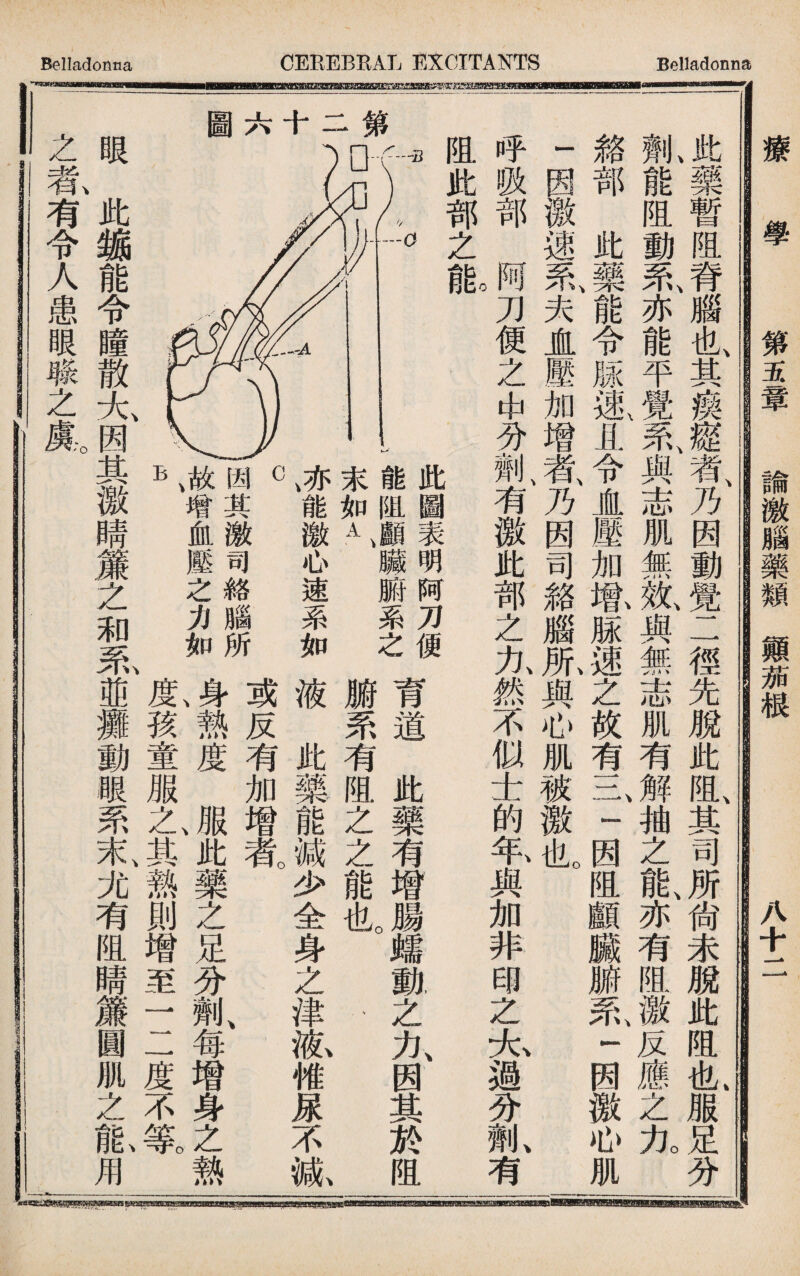 Belladonna
CEREBRAL EXCITANTS
Belladonna
療學 第五章 論激腦藥類 顛茄根 八十二
此藥暫阻脊腦也、其瘈瘲者、乃因動覺二徑先脫此阻、其司所尙未脫此阻也、服足分
劑、能阻動系、亦能平覺系、與志肌無效、與無志肌有解抽之能、亦有阻激反應之力。
絡部 此藥能令脉速、且令血壓加增、脉速之故有三、一因阻顱臟腑系、一因激心肌
一因激速系、夫血壓加增者、乃因司絡腦所、與心肌被激也。
呼吸部 阿刀便之中分劑、有激此部之力、然不似士的年、與加非印之大、過分劑、有
阻此部之能。
第二十六圖
B
C
A
此圖表明阿刀便
能阻顱臟腑系之
末如A、
亦能激心速系如
C、
因其激司絡腦所
故增血壓之力如
B、
育道 此藥有增腸蠕動之力、因其於阻
腑系有阻之之能也。
液 此藥能減少全身之津液、惟尿不減、
或反有加增者。
身熱度 服此藥之足分劑、每增身之熱
度、孩童服之、其熱則增至一二度不等。
眼 此藥能令瞳散大、因其激睛簾之和系、並癱動眼系末、尤有阻睛簾圓肌之能、用
之者、有令人患眼矇之虞。